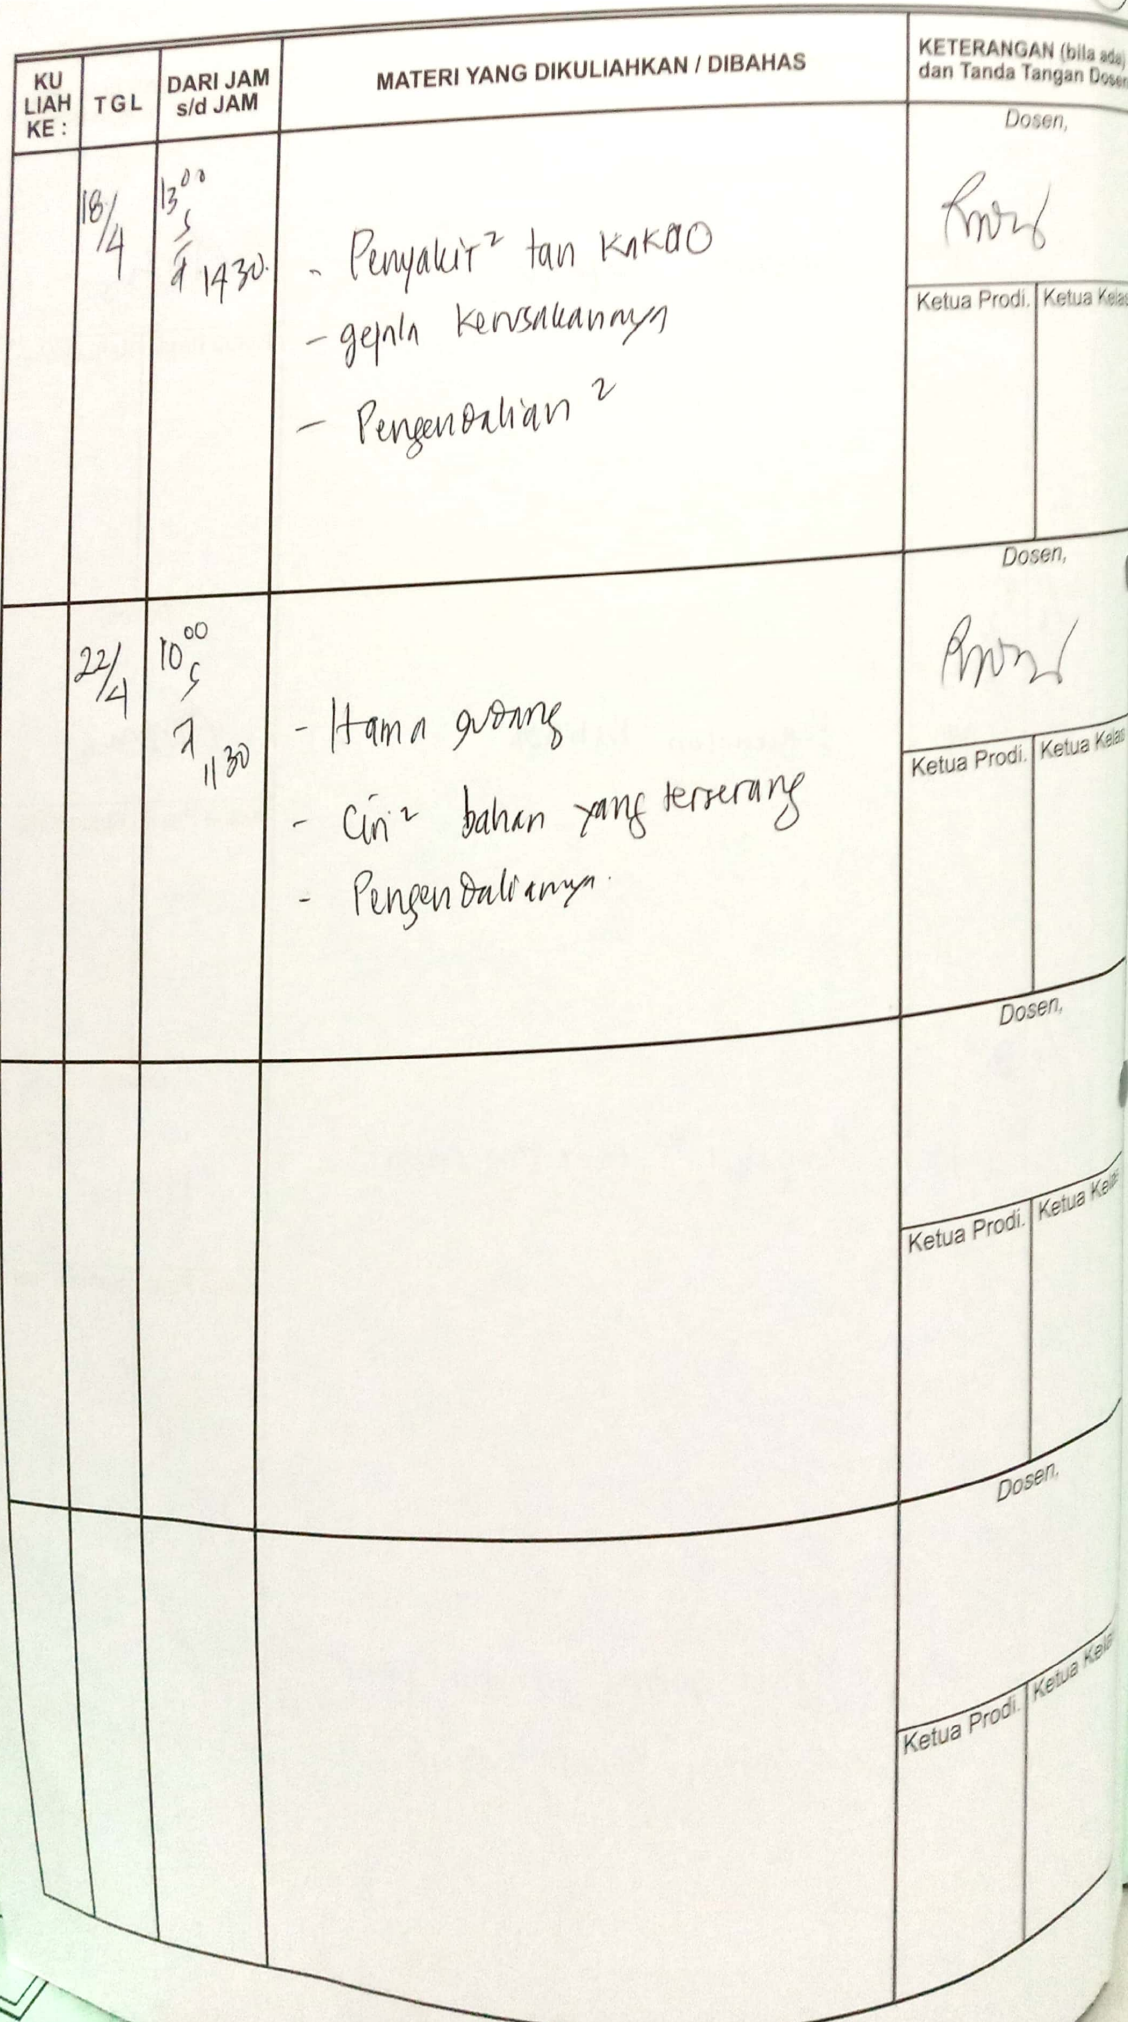 KU LIAH KE :
TGL
DARI JAM s/d JAM
MATERI YANG DIKULIAHKAN / DIBAHAS
KETERANGAN (bila ada)
dan Tanda Tangan Dosen
Dosen,
18/4
13⁰⁰
s
d 14 30.
- Penyakit² tan Kakao
- gejala kerusakannya
- Pengendalian ²
Ketua Prodi. Ketua Kelas
Dosen,
22/4
10⁰⁰
s
11 30
- Hama gudang
- Ciri² bahan yang terserang
- Pengendaliannya.
Ketua Prodi. Ketua Kelas
Dosen,
Ketua Prodi. Ketua Kelas
Dosen,
Ketua Prodi. Ketua Kelas